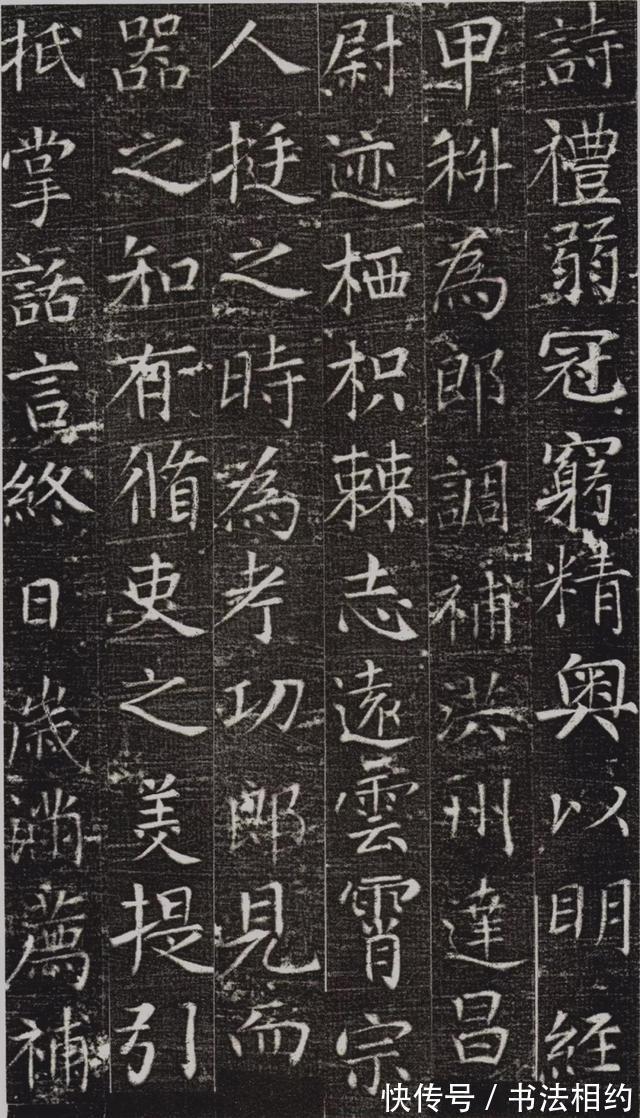 詩禮弱冠窮精奧以明經
甲科為郎調補洪州達昌
尉迹栖枳棘志遠雲霄宗
人挺之時為考功郎見而
器之知有脩吏之美提引
抵掌話言終日歲滿薦補
快传号 / 书法相约